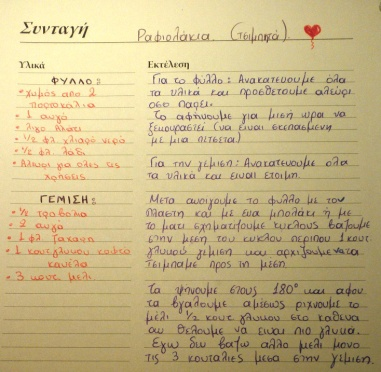 Συνταγή
Ραφιολάκια. (Τσιμπητά).
Υλικά
Εκτέλεση
ΦΥΛΛΟ:
• χυμός από 2
πορτοκάλια
• 1 αυγό
• λίγο αλάτι
• 1/2 φλ χλιαρό νερό
• 1/2 φλ. λάδι
• Αλεύρι για όλες τις
χρήσεις
ΓΕΜΙΣΗ:
• 1/2
• 2 αυγά
• 1 φλ ζάχαρη
• 1 κουτ γλυκού κοφτό
κανέλα
• 3 κουτ. μέλι
Για το φύλλο: Ανακατεύουμε όλα
τα υλικά και προσθέτουμε αλεύρι
όσο πάρει.
Το αφήνουμε για μισή ώρα να
ξεκουραστεί (να είναι σκεπασμένη
με μια πετσέτα)
Για την γέμιση: Ανακατεύουμε όλα
τα υλικά και είναι έτοιμη.
Μετά ανοίγουμε το φύλλο με τον
πλάστη και με ένα μπολάκι ή με
το μάτι σχηματίζουμε κύκλους βάζουμε
στην μέση του κύκλου περίπου 1 κουτ
γλυκού γέμιση και αρχίζουμε να τα
τσιμπάμε προς τη μέση.
Τα ψήνουμε στους 180° και αφού
τα βγάλουμε αμέσως ρίχνουμε το
μέλι 1/2 κουτ γλυκού στο καθένα
αν θέλουμε να είναι πιο γλυκά.
Εγώ δεν βάζω άλλο μέλι μόνο
τις 3 κουταλιές μέσα στην γέμιση.